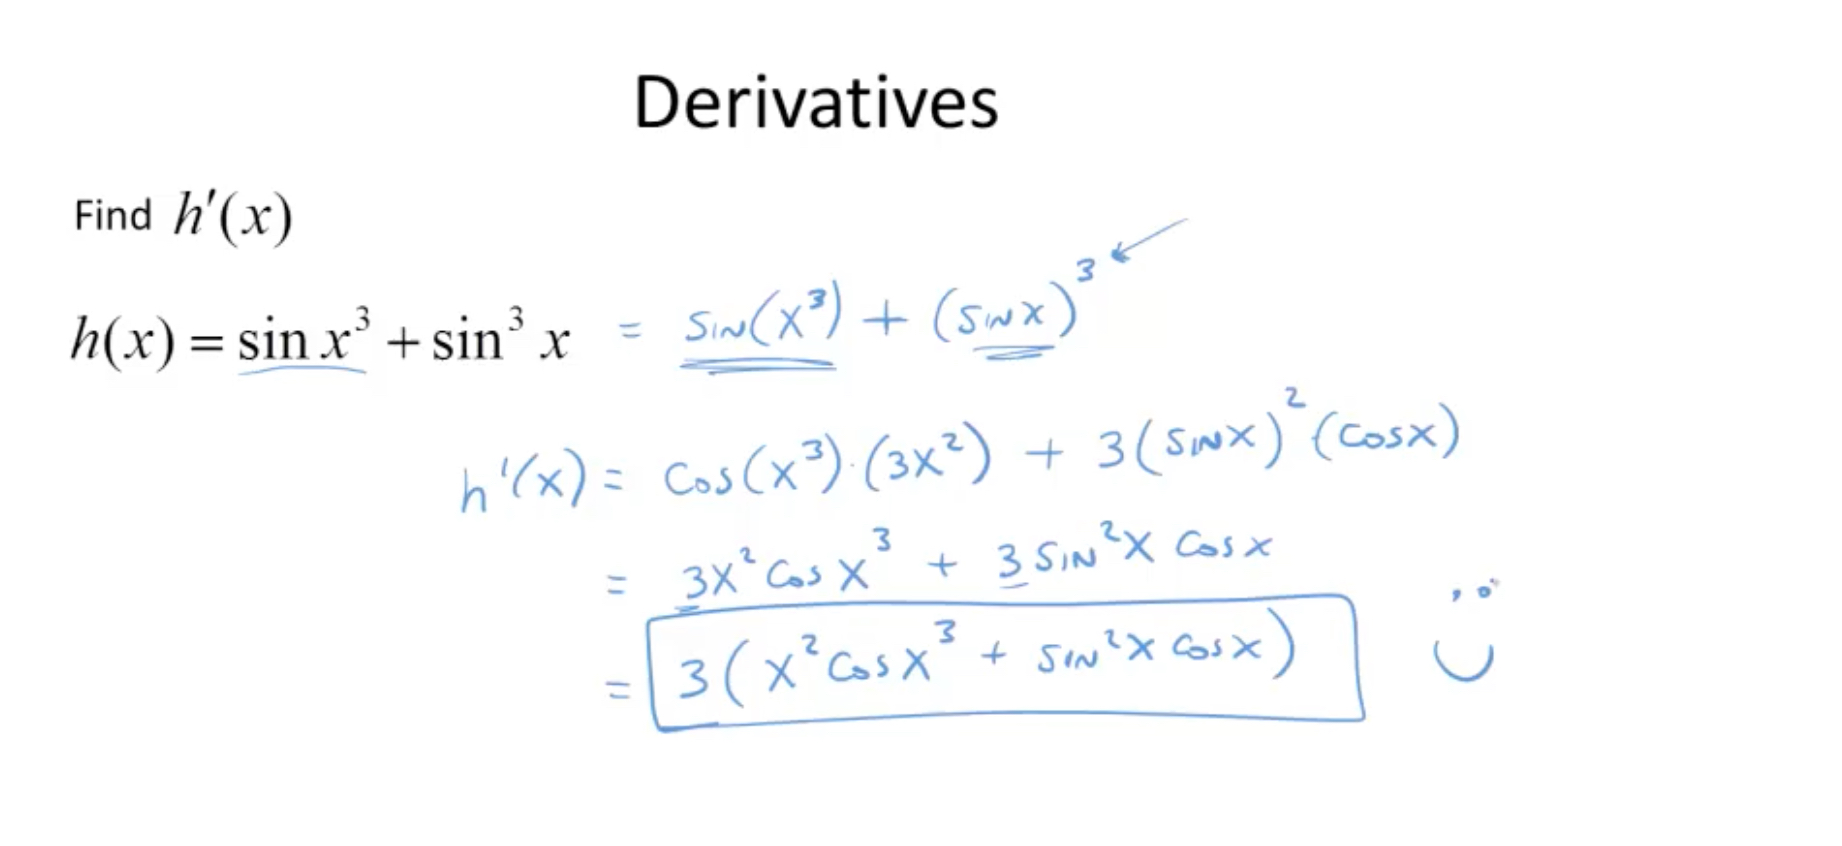 Derivatives
Find h′(x)
h(x) = sin x³ + sin³ x = sin(x³) + (sinx)³
h'(x) = cos(x³)·(3x²) + 3(sinx)²(cosx)
= 3x² cos x³ + 3 sin²x cosx
= 3(x² cosx³ + sin²x cosx)